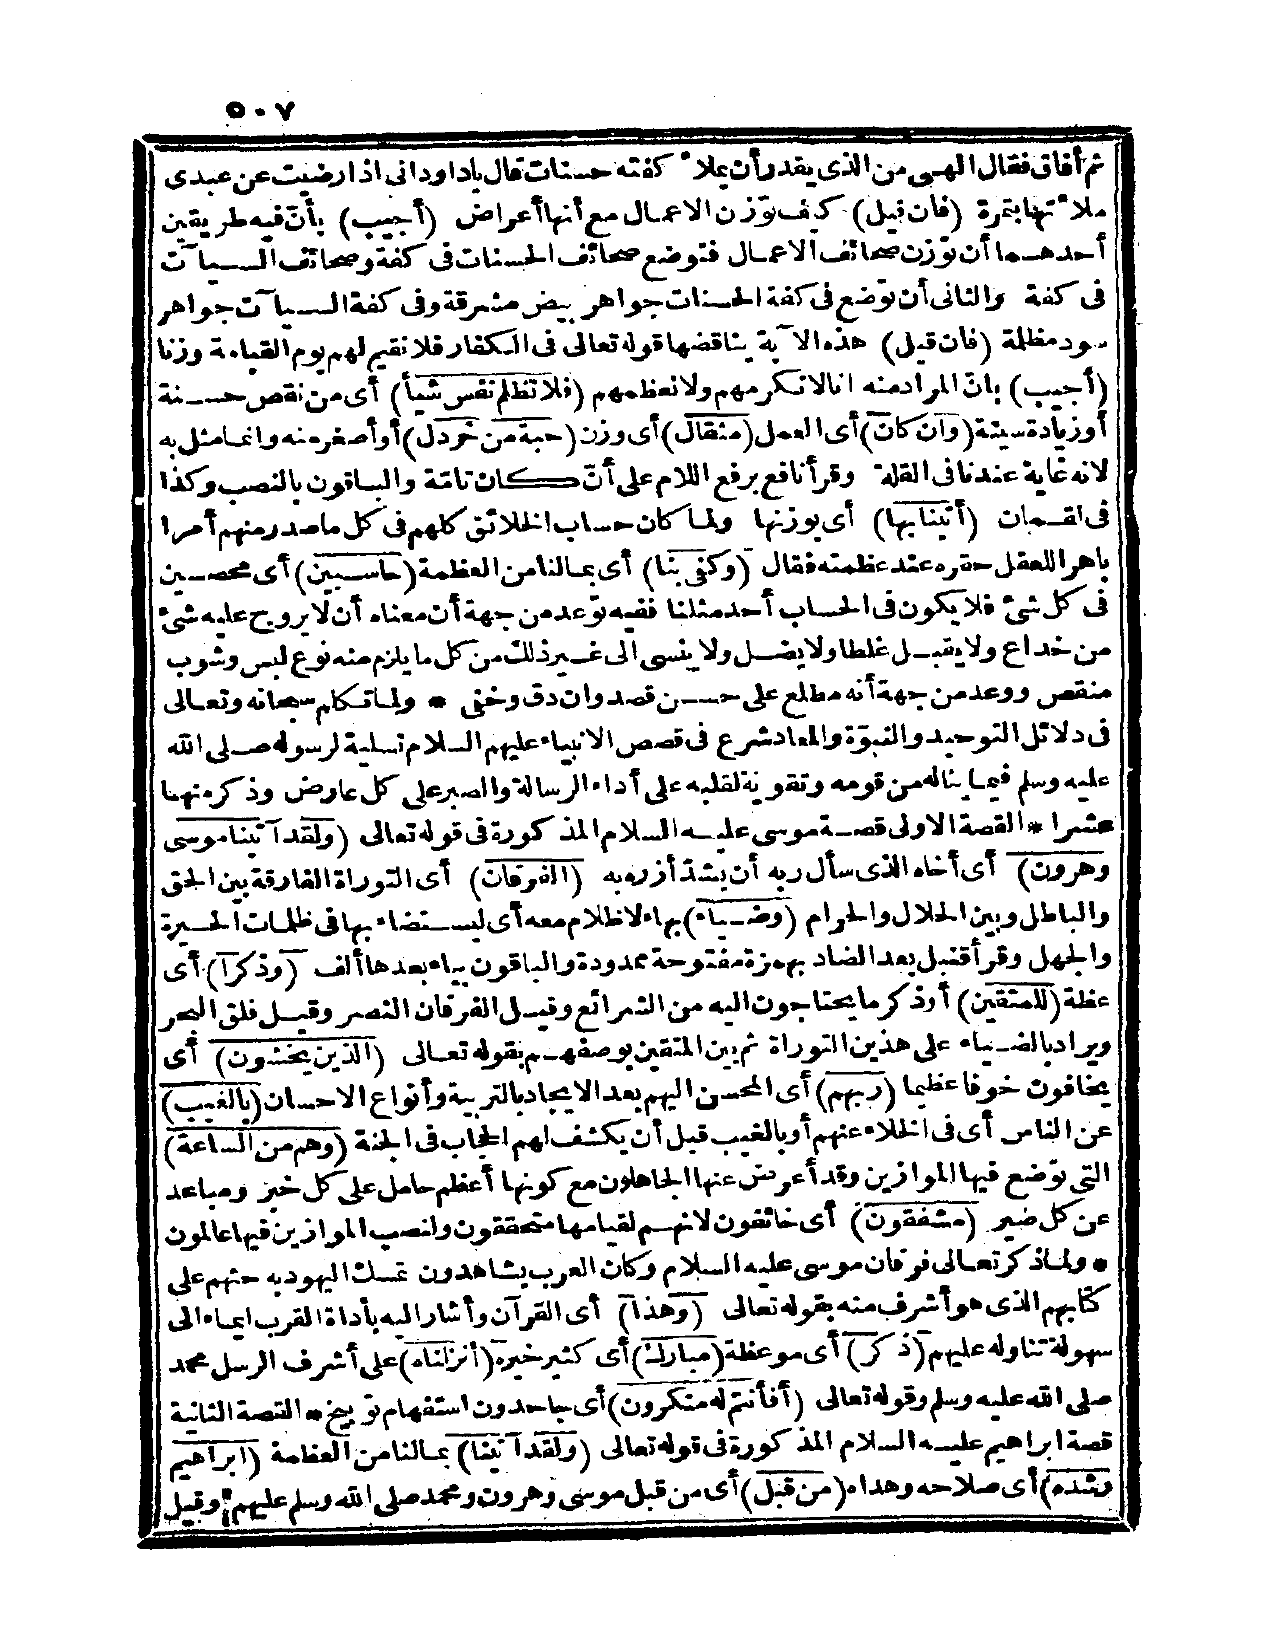 ٥٠٧
ثم أفاق فقال الهى من الذى يقدر أن يملأ كفته حسنات قال يا داود انى اذا رضيت عن عبدى
ملأتها بتمرة (فان قيل) كيف توزن الاعمال مع أنها أعراض (أجيب) بأنّ فيه طريقين
أحدهما أن توزن صحائف الاعمال فتوضع صحائف الحسنات فى كفة وصحائف السيآت
فى كفة والثانى أن توضع فى كفة الحسنات جواهر بيض مشرقة وفى كفة السيآت جواهر
سود مظلمة (فان قيل) هذه الآية يناقضها قوله تعالى فى الكفار فلا نقيم لهم يوم القيامة وزنا
(أجيب) بانّ المراد منه انا لا نكرمهم ولا نعظمهم (فلا تظلم نفس شيأ) أى من نقص حسنة
أو زيادة سيئة (وان كان) أى العمل (مثقال) أى وزن (حبة من خردل) أو أصغر منه وانما مثل به
لانه غاية عندنا فى القلة وقرأ نافع برفع اللام على أنّ كان تامّة والباقون بالنصب وكذا
فى لقمان (أتينا بها) أى بوزنها ولما كان حساب الخلائق كلهم فى كل ما صدر منهم أمرا
باهرا للعقل حقره عند عظمته فقال (وكفى بنا) أى بمالنا من العظمة (حاسبين) أى محصين
فى كل شئ فلا يكون فى الحساب أحد مثلنا ففيه توعد من جهة أن معناه أن لا يروج عليه شئ
من خداع ولا يقبل غلطا ولا يضل ولا ينسى الى غير ذلك من كل ما يلزم منه نوع لبس وشوب
منقص ووعد من جهة أنه مطلع على حسن قصد وان دق وخفى * ولما تكلم سبحانه وتعالى
فى دلائل التوحيد والنبوّة والمعاد شرع فى قصص الانبياء عليهم السلام تسلية لرسوله صلى الله
عليه وسلم فيما يناله من قومه وتقوية لقلبه على أداء الرسالة والصبر على كل عارض وذكر منها
عشرا * القصة الاولى قصة موسى عليه السلام المذكورة فى قوله تعالى (ولقد آتينا موسى
وهرون) أى أخاه الذى سأل ربه أن يشدّ أزره به (الفرقان) أى التوراة الفارقة بين الحق
والباطل وبين الحلال والحرام (وضياء) بهاء لا ظلام معه أى ليستضاء بها فى ظلمات الحيرة
والجهل وقرأ قنبل بعد الضاد بهمزة مفتوحة ممدودة والباقون بياء بعدها ألف (وذكرا) أى
عظة (للمتقين) أو ذكر ما يحتاجون اليه من الشرائع وقيل الفرقان النصر وقيل فلق البحر
ويراد بالضياء على هذين التوراة ثم بين المتقين بوصفهم بقوله تعالى (الذين يخشون) أى
يخافون خوفا عظيما (ربهم) أى المحسن اليهم بعد الايجاد بالتربية وأنواع الاحسان (بالغيب)
عن الناس أى فى الخلاء عنهم أو بالغيب قبل أن يكشف لهم الحجاب فى الجنة (وهم من الساعة)
التى توضع فيها الموازين وقد أعرض عنها الجاهلون مع كونها أعظم حامل على كل خير ومباعد
عن كل ضير (مشفقون) أى خائفون لانهم لقيامها متحققون ولنصب الموازين فيها عالمون
* ولما ذكر تعالى فرقان موسى عليه السلام وكان العرب يشاهدون تمسك اليهود به حثهم على
كتابهم الذى هو أشرف منه بقوله تعالى (وهذا) أى القرآن وأشار اليه بأداة القرب ايماء الى
سهولة تناوله عليهم (ذكر) أى موعظة (مبارك) أى كثير خيره (أنزلناه) على أشرف الرسل محمد
صلى الله عليه وسلم وقوله تعالى (أفأنتم له منكرون) أى جاحدون استفهام توبيخ * القصة الثانية
قصة ابراهيم عليه السلام المذكورة فى قوله تعالى (ولقد آتينا) بمالنا من العظمة (ابراهيم
رشده) أى صلاحه وهداه (من قبل) أى من قبل موسى وهرون ومحمد صلى الله وسلم عليهم وقيل